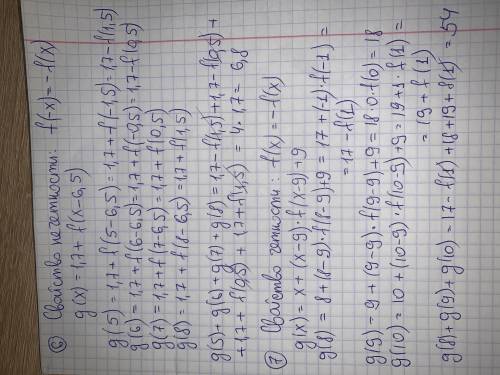 ⑥ Свойство нечетности: f(-x) = -f(x)
g(x) = 1,7 + f(x-6,5)
g(5) = 1,7 + f(5-6,5) = 1,7 + f(-1,5) = 1,7 - f(1,5)
g(6) = 1,7 + f(6-6,5) = 1,7 + f(-0,5) = 1,7 - f(0,5)
g(7) = 1,7 + f(7-6,5) = 1,7 + f(0,5)
g(8) = 1,7 + f(8-6,5) = 1,7 + f(1,5)
g(5) + g(6) + g(7) + g(8) = 1,7 - f(1,5) + 1,7 - f(0,5) +
+ 1,7 + f(0,5) + 1,7 + f(1,5) = 4 · 1,7 = 6,8
⑦ Свойство четности: f(x) = -f(x)
g(x) = x + (x-9) · f(x-9) + 9
g(8) = 8 + (8-9) · f(8-9) + 9 = 17 + (-1) · f(-1) =
= 17 - f(1)
g(9) = 9 + (9-9) · f(9-9) + 9 = 18 · 0 · f(0) = 18
g(10) = 10 + (10-9) · f(10-9) + 9 = 19 + 1 · f(1) =
= 19 + f(1)
g(8) + g(9) + g(10) = 17 - f(1) + 18 + 19 + f(1) = 54